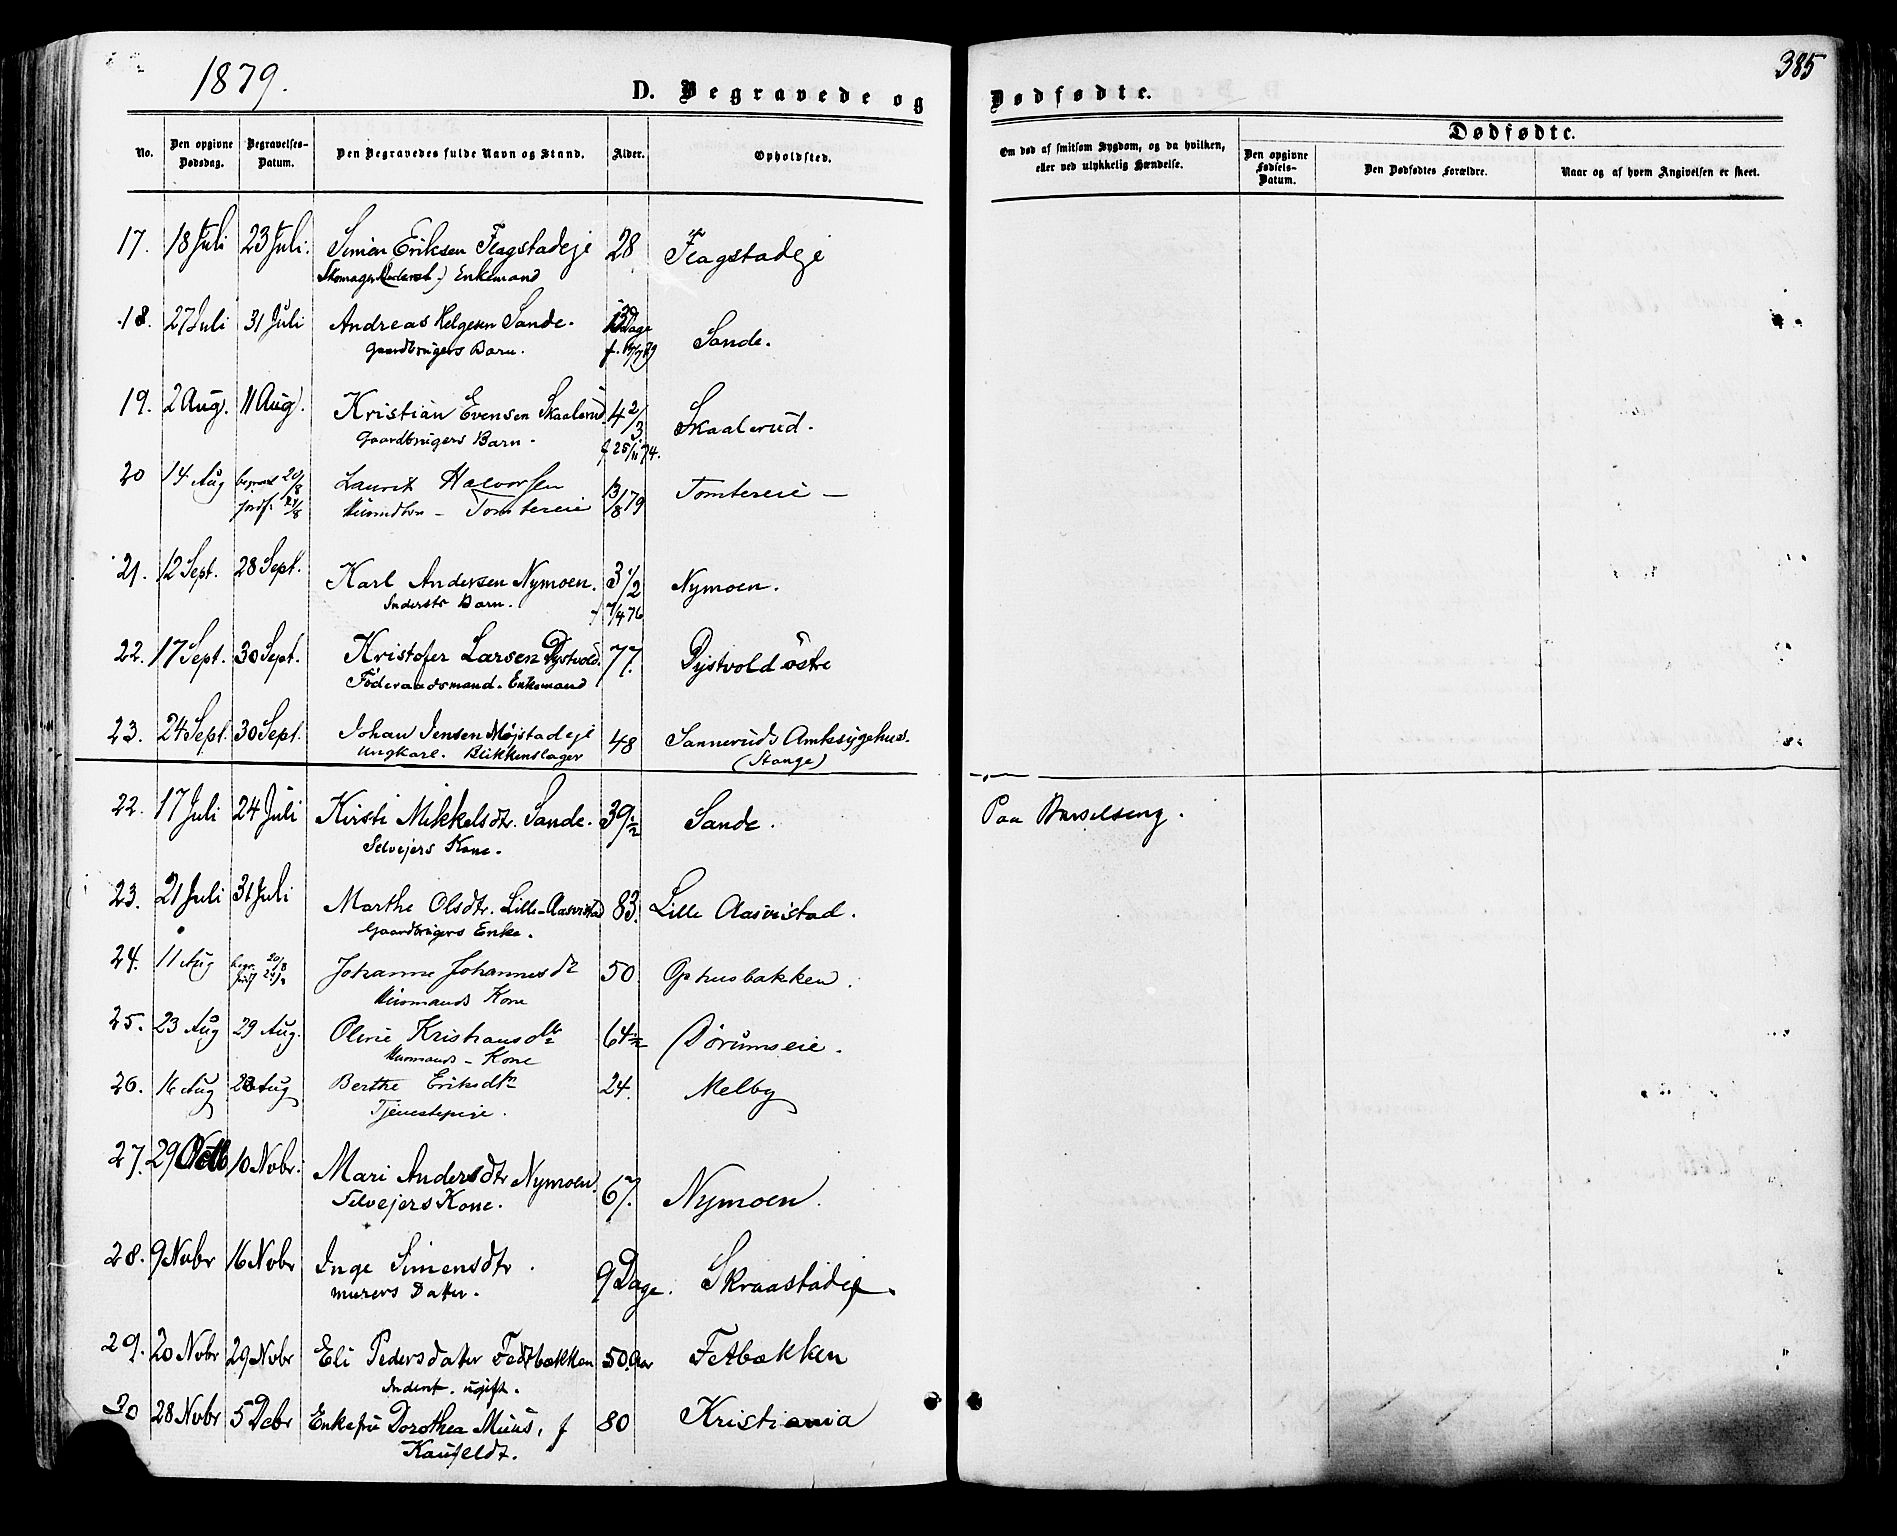 1879.
385
D. Begravede og Dødfødte.
No.
Den opgivne Dødsdag.
Begravelses-Datum.
Den Begravedes fulde Navn og Stand.
Alder.
Opholdsted.
Om død af smitsom Sygdom, og da hvilken, eller ved ulykkelig Hændelse.
Dødfødte.
Den opgivne Fødsels-Datum.
Den Dødfødtes Forældre.
Naar og af hvem Angivelsen er skeet.
17. 18 Juli 23 Juli. Simen Eriksen Flagstadeje 28 Flagstadeje
Skomager (Inderst.) Enkemand
18. 27 Juli 31 Juli Andreas Helgesen Sande. Dage Sande.
Gaardbrugers Barn.
19. 2 Aug. 11 Aug. Kristian Evensen Skaalerud. 4 2/3 Skaalerud.
Gaardbrugers Barn. f 25/11 74.
20 14 Aug begravet 20/8 Laurits Halvorsen 13/8 79 Tomtereie —
jordf. 24/8 Huusmdbrn — Tomtereie
21. 12 Sept. 28 Sept. Karl Andersen Nymoen. 3 1/2 Nymoen.
Indersts Barn. 7/4 76
22. 17 Sept. 30 Sept. Kristofer Larsen Dystvold. 77. Dystvold östre
Föderaadsmand. Enkemand
23. 24 Sept. 30 Sept. Johan Jensen Mojstadeje 48 Sanneruds Amtssygehus.
Ungkarl. Blikkenslager (Stange)
22. 17 Juli 24 Juli Kirsti Mikkelsdtr. Sande. 39 1/2 Sande. Paa Barselseng.
Selvejers Kone.
23. 21 Juli 31 Juli Marthe Olsdtr. Lille-Aasvestad 83. Lille Aasvestad.
Gaardbrugers Enke.
24. 11 Aug begr. 20/8 Johanne Johannesdtr 50 Ophusbakken.
Huusmands Kone
25. 23 Aug 29 Aug. Oline Kristiansdtr 64 1/2 Dørumseie.
Husmands — Kone
26. 16 Aug 28 Aug Berthe Eriksdtr 24. Melby
Tjenestepige.
27. 29 Octb 10 Novbr. Mari Andersdtr Nymoen. 67. Nymoen.
Selvejers Kone.
28. 9 Novbr 16 Novbr Inge Simensdtr. 9 Dage. Skraastadeje.
murers Datter.
29. 20 Novbr 29 Novbr Eli Pedersdatter Fedtbækken 50. Aar Fetbækken
Inderst. ugift.
30 28 Novbr 5 Decbr Enkefru Dorothea Muus, f 80 Kristiania
Kaufeldt.